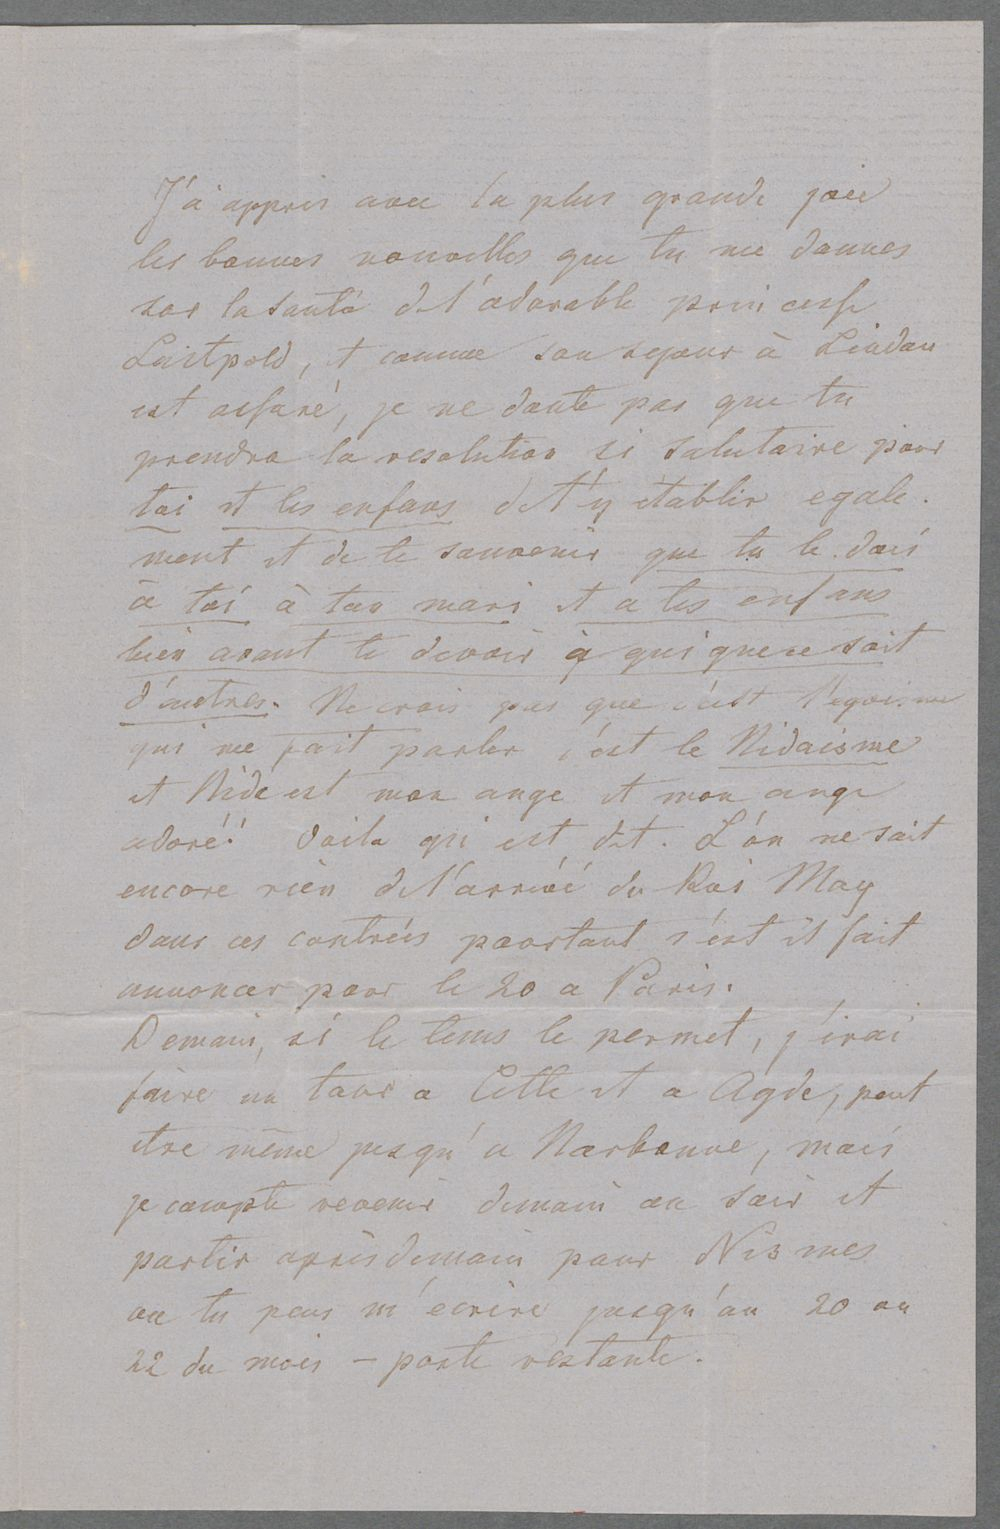 J'ai appris avec la plus grande joie
les bonnes nouvelles que tu me donnes
sur la santé de l'adorable princesse
Luitpold, et comme son sejour à Lindau
est assuré, je ne doute pas que tu
prendra la resolution si salutaire pour
toi et les enfans de t'y établir egale-
ment et de te souvenir que tu le dois
à toi à ton mari et a tes enfans
bien avant le devoir à qui que ce soit
d'autres. Ne crois pas que c'est l'egoisme
qui me fait parler c'est le Nidaisme
et Nide est mon ange et mon ange
adoré! Voila qui est dit. L'on ne sait
encore rien de l'arrivé du Roi Max
dans ces contrées pourtant s'est il fait
annoncer pour le 20 a Paris.
Demain, si le tems le permet, j'irai
faire un tour a Cette et a Agde, peut
etre même jusqu'a Narbonne, mais
je compte revenir demain au soir et
partir après demain pour Nismes
ou tu peus m'ecrire jusqu'au 20 ou
22 du mois – poste restante.